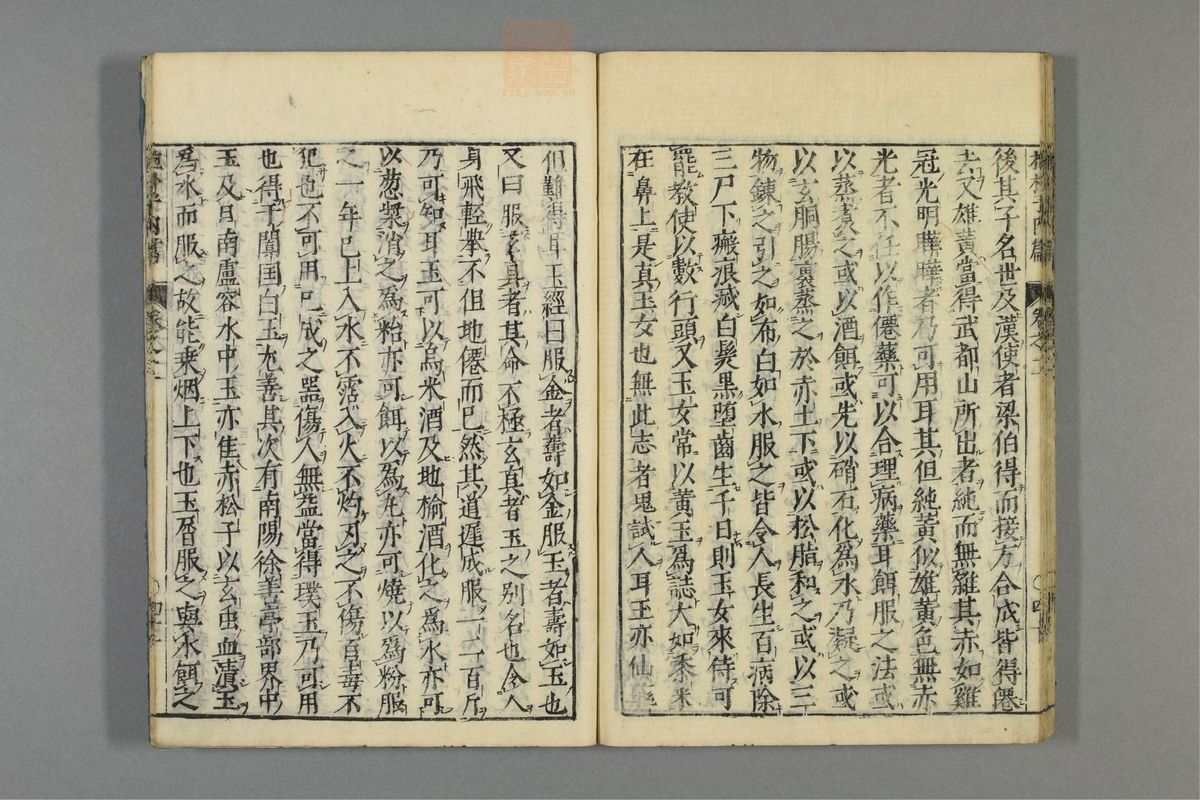 後其子名世及漢使者梁伯得而接方合成皆得僊
去又雄黃當得武都山所出者純而無雜其赤如雞
冠光明曄曄者乃可用耳其但純黃似雄黃色無赤
光者不任以作僊藥可以合理病藥耳餌服之法或
以蒸煑之或以酒餌或先以硝石化爲水乃凝之或
以玄胴腸裹蒸之於赤土下或以松脂和之或以三
物鍊之引之如布白如水服之皆令人長生百病除
三尸下瘢痕滅白髮黑墮齒生千日則玉女來侍可
罷敎使以數行頭又玉女常以黃玉爲誌大如黍米
在鼻上是真玉女也無此志者鬼試人耳玉亦仙藥
但難得耳玉經曰服金者壽如金服玉者壽如玉也
又曰服玄真者其命不極玄真者玉之別名也令人
身飛輕擧不但地僊而已然其道遲成服一二百斤
乃可知耳玉可以烏米酒及地榆酒化之爲水亦可
以葱漿消之爲粭亦可餌以爲丸亦可燒以爲粉服
之一年已上入水不霑入火不灼刃之不傷百毒不
犯也不可用已成之器傷人無益當得璞玉乃可用
也得于闐国白玉尤善其次有南陽徐善亭部界中
玉及日南盧容水中玉亦隹赤松子以玄虫血漬玉
爲水而服之故能乘烟上下也玉屑服之與水餌之
抱朴子內篇 卷之二